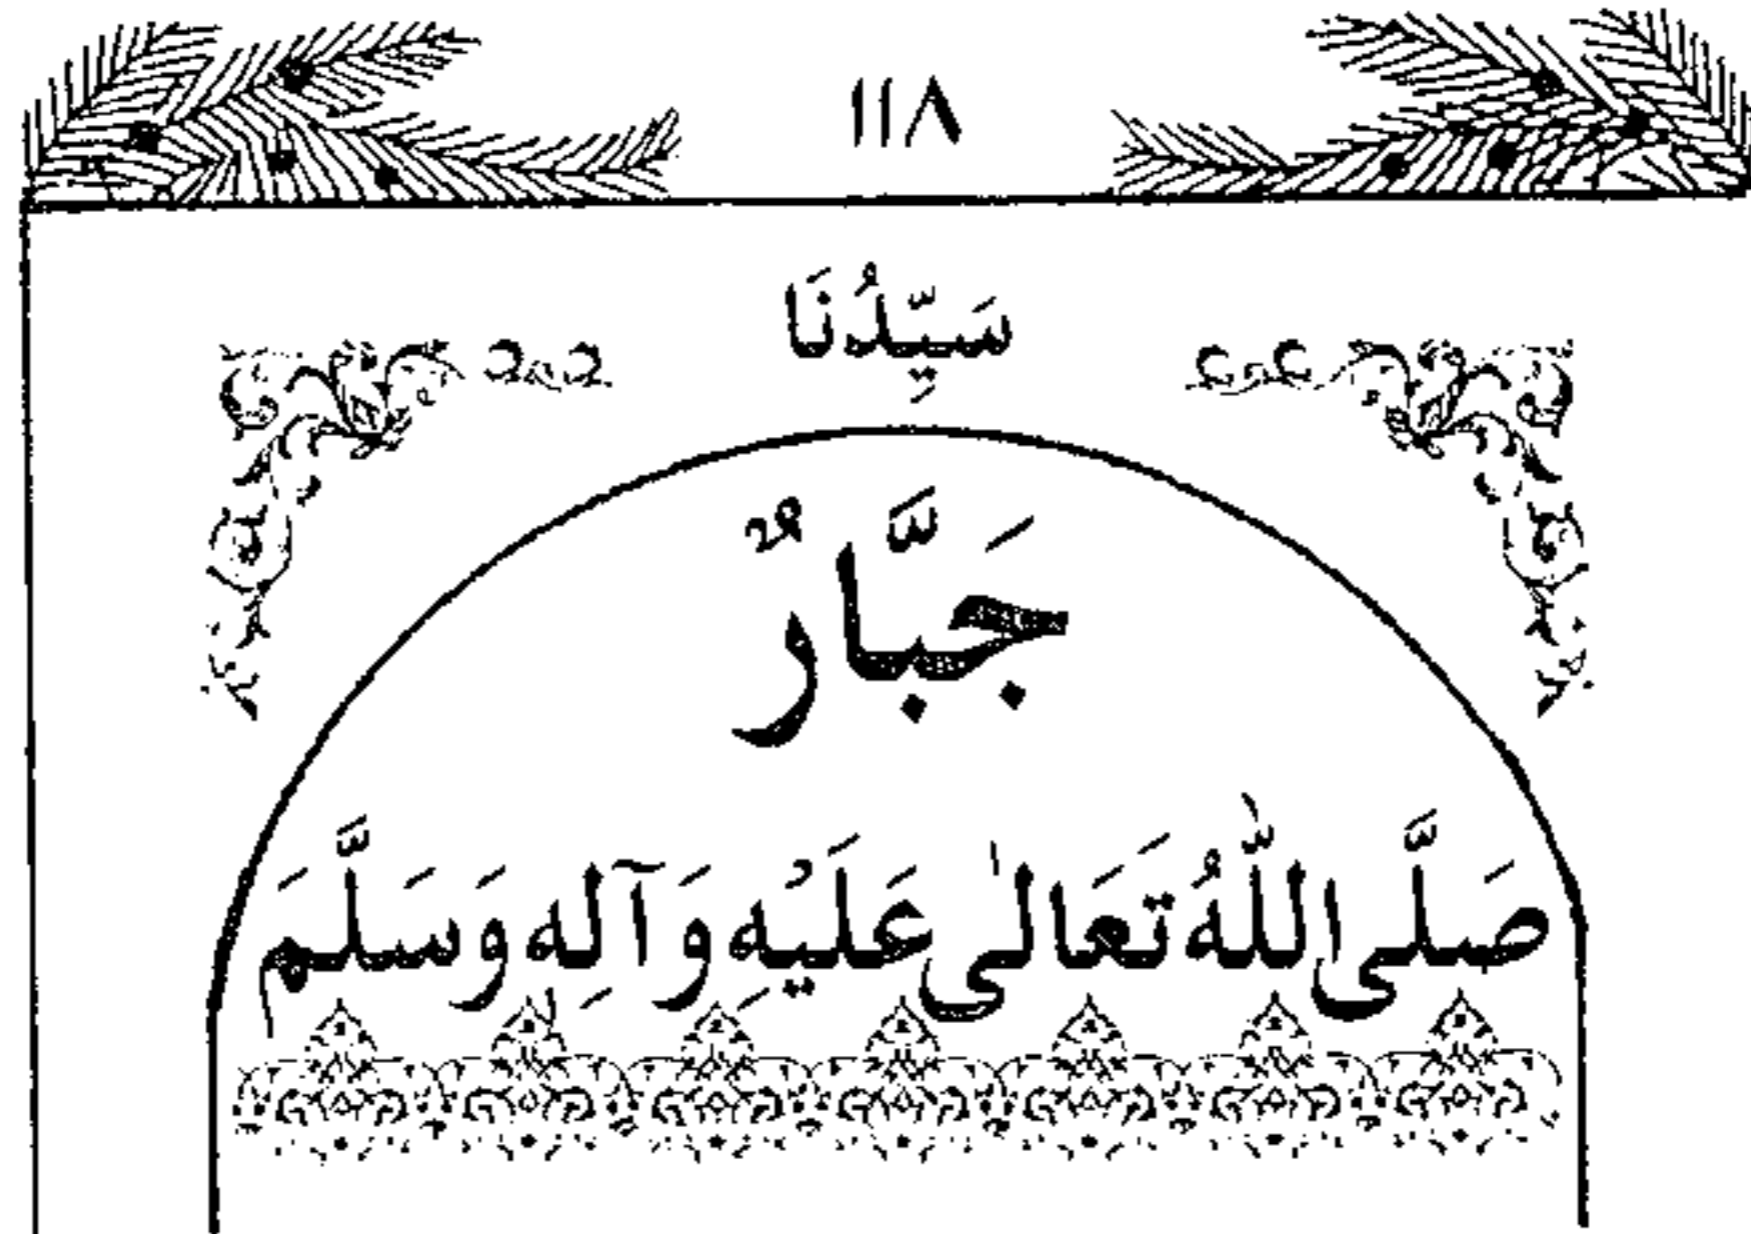 ١١٨
سَيِّدُنَا
جَبَّارٌ
صَلَّى اللّٰهُ تَعَالٰى عَلَيْهِ وَآلِهِ وَسَلَّمَ